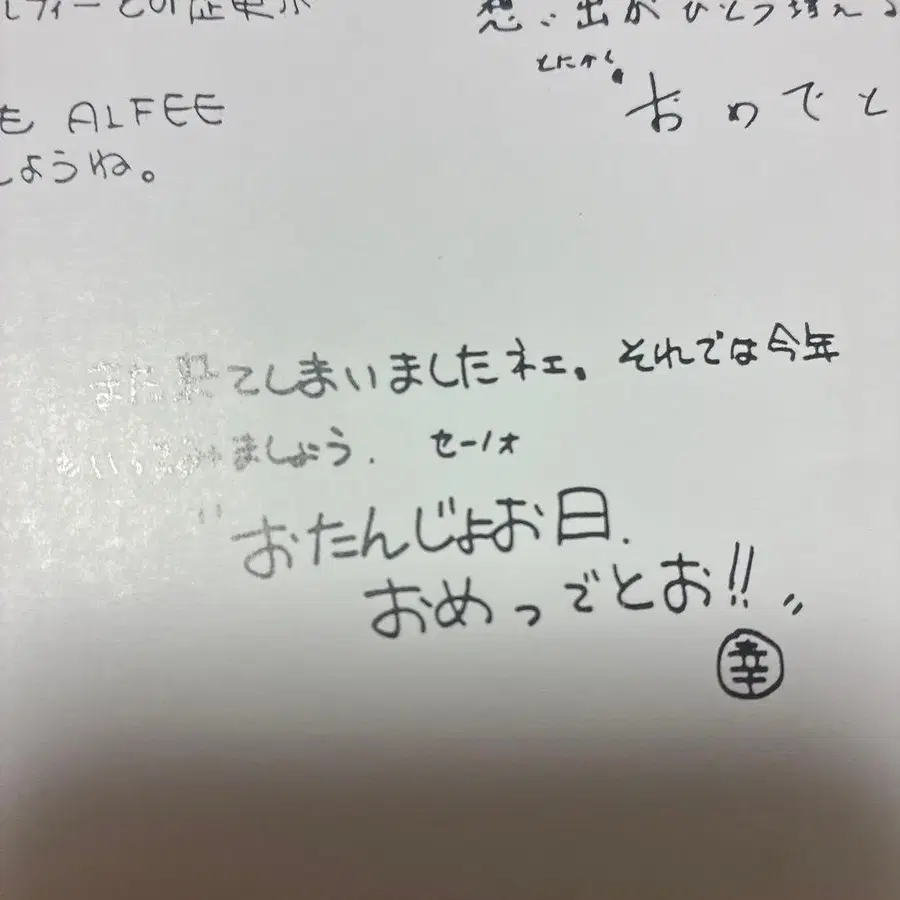 も ALFEE
しようね。
想い出がひとつ増える
とにかく
おめでと
また来てしまいましたネェ。それでは今年
ましょう. セーノォ
"おたんじょお日.
おめっでとお!!"
幸